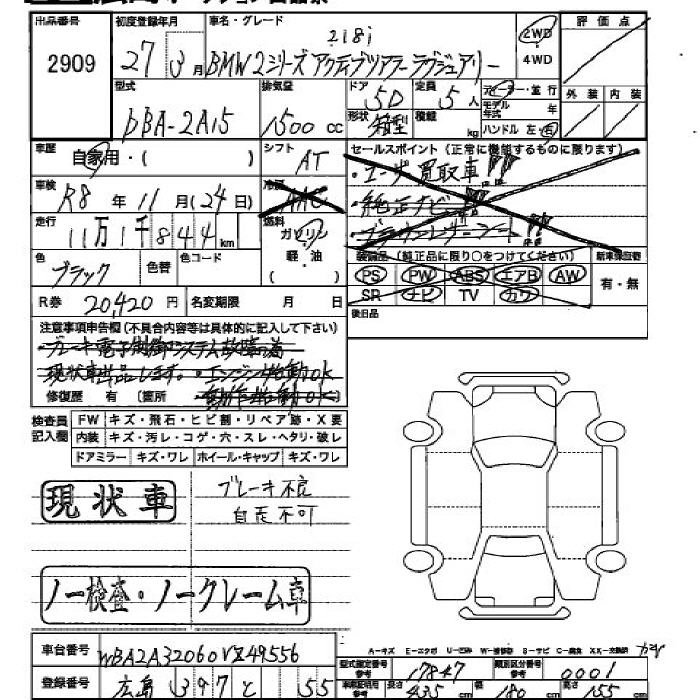 出品番号 初度登録年月 車名・グレード 評価点
2909 27年3月 218i 2WD 4WD
BMW 2シリーズ アクティブツアラー ラグジュアリー
型式 排気量 ドア 定員 ディーラー・並行
DBA-2A15 1500 cc 5D 5人 モデル年式 年 外装 内装
形状 箱型 積載 kg ハンドル 左・右
車歴 自家用・( ) シフト AT セールスポイント(正常に機能するものに限ります)
車検 R8年11月(24日) 冷房 AAC ・ユーザー買取車!!
・純正ナビ!!
走行 11万1千844km 燃料 ガソリン 軽・油 ( ) ・ブラウンレザーシート!!
色 ブラック 色替 色コード 装備品(純正品に限り○をつけてください) 新車保証書
PS PW ABS エアB AW 有・無
R券 20,420円 名変期限 月 日 SR ナビ TV カワ
注意事項申告欄(不具合内容等は具体的に記入して下さい) 後日品
・ブレーキ電子制御システム故障の為
現状車出品します。・エンジン始動OK
修復歴 有 (箇所
検査員記入欄 FW キズ・飛石・ヒビ割・リペア跡・X要
内装 キズ・汚レ・コゲ・穴・スレ・ヘタリ・破レ
ドアミラー キズ・ワレ ホイール・キャップ キズ・ワレ
現状車 ブレーキ不良
自走不可
ノー検査・ノークレーム車
A-キズ E-エクボ U-凹み W-補修跡 S-サビ C-腐食 XX-交換済
車台番号 WBA2A32060VX49556 型式指定番号 参考 17847 類別区分番号 参考 0001
登録番号 広島 397 と 55 長さ 435 cm 幅 180 cm 高さ 155 cm